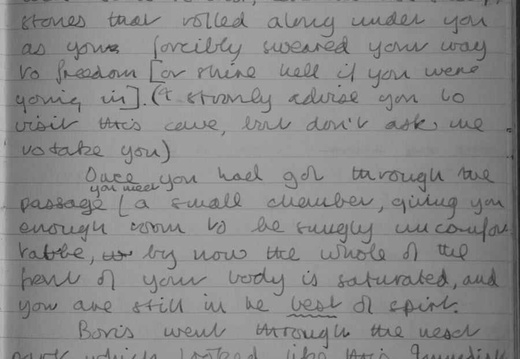 stones that rolled along under you
as you forcibly sweared your way
to freedom [or shine hell if you were
going in]. (I stronly advise you to
visit this cave, but don't ask me
to take you)
Once you had got through the
passage [you meet a small chamber, giving you
enough room to be snugly uncomfor
table, by now the whole of the
front of your body is saturated, and
you are still in he best of spirit.
Boris went through the next
which looked like this